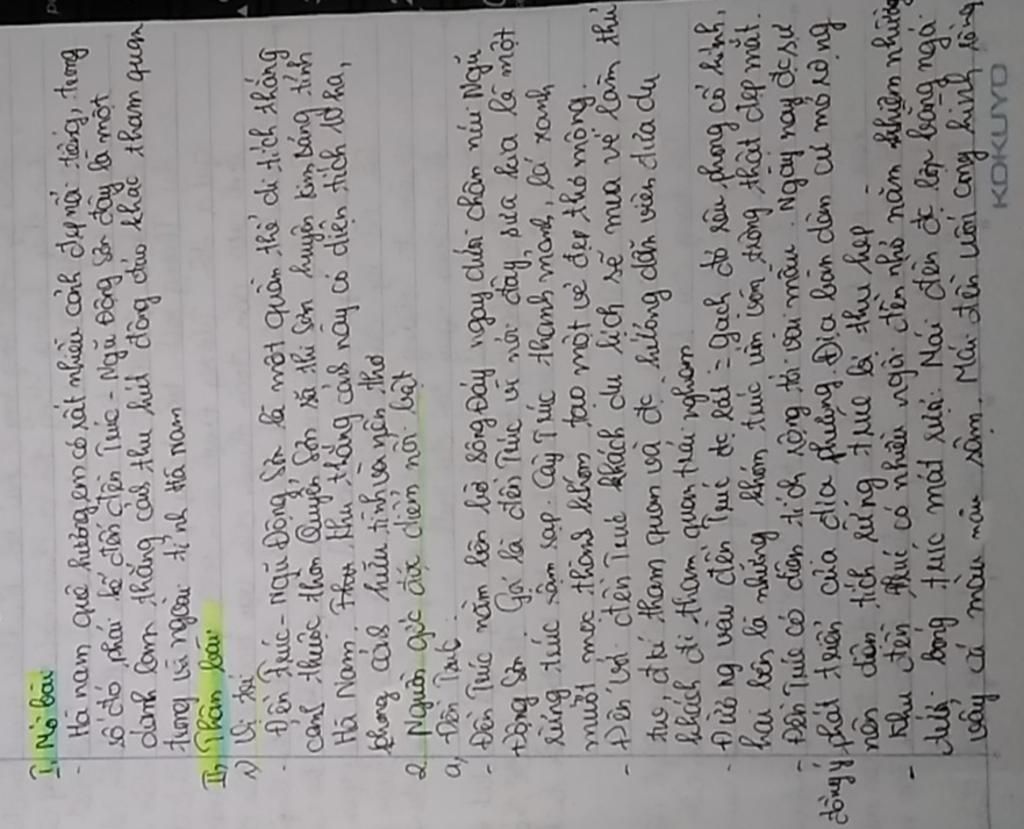 I, Mở bài
- Hà nam quê hương em có rất nhiều cảnh đẹp nổi tiếng, trong
số đó phải kể đến đền Trúc - Ngũ Động Sơn đây là một
danh lam thắng cảnh thu hút đông đảo khác tham quan
trong và ngoài tỉnh Hà Nam
II, Thân bài
1) Vị trí
- Đền Trúc - Ngũ Động Sơn là một quần thể di tích thắng
cảnh thuộc thôn Quyển Sơn xã thi Sơn huyện kim bảng tỉnh
Hà Nam. Khu thắng cảnh này có diện tích 10 ha,
phong cảnh hữu tình và nên thơ
2. Nguồn gốc đặc điểm nổi bật
a, Đền Trúc
- Đền Trúc nằm bên bờ sông Đáy ngay dưới chân núi Ngũ
Động Sơn. Gọi là đền Trúc vì nơi đây xưa kia là một
rừng trúc rậm rạp. Cây Trúc thanh mảnh, lá xanh
muốt mọc thành khóm tạo một vẻ đẹp thơ mộng.
- Đến với đền Trúc khách du lịch sẽ mua vé làm thủ
tục, để tham quan và đc hướng dẫn viên đưa du
khách đi tham quan trải nghiệm
- Đường vào đền Trúc đc lát = gạch đỏ rêu phong cổ kính,
hai bên là những khóm trúc uốn vòng thật đẹp mắt.
- Đền Trúc có diện tích rộng tới vài mẫu. Ngày nay đc sự
đồng ý phát triển của địa phương Địa bàn dân cư mở rộng
nên diện tích rừng trúc bị thu hẹp
- Khu đền Trúc có nhiều ngôi đền nhỏ nằm khiêm nhường
dưới bóng trúc mát rượi. Mái đền đc lợp bằng ngói
vẩy cá màu nâu sậm. Mái đền uốn cong hình rồng
KOKUYO